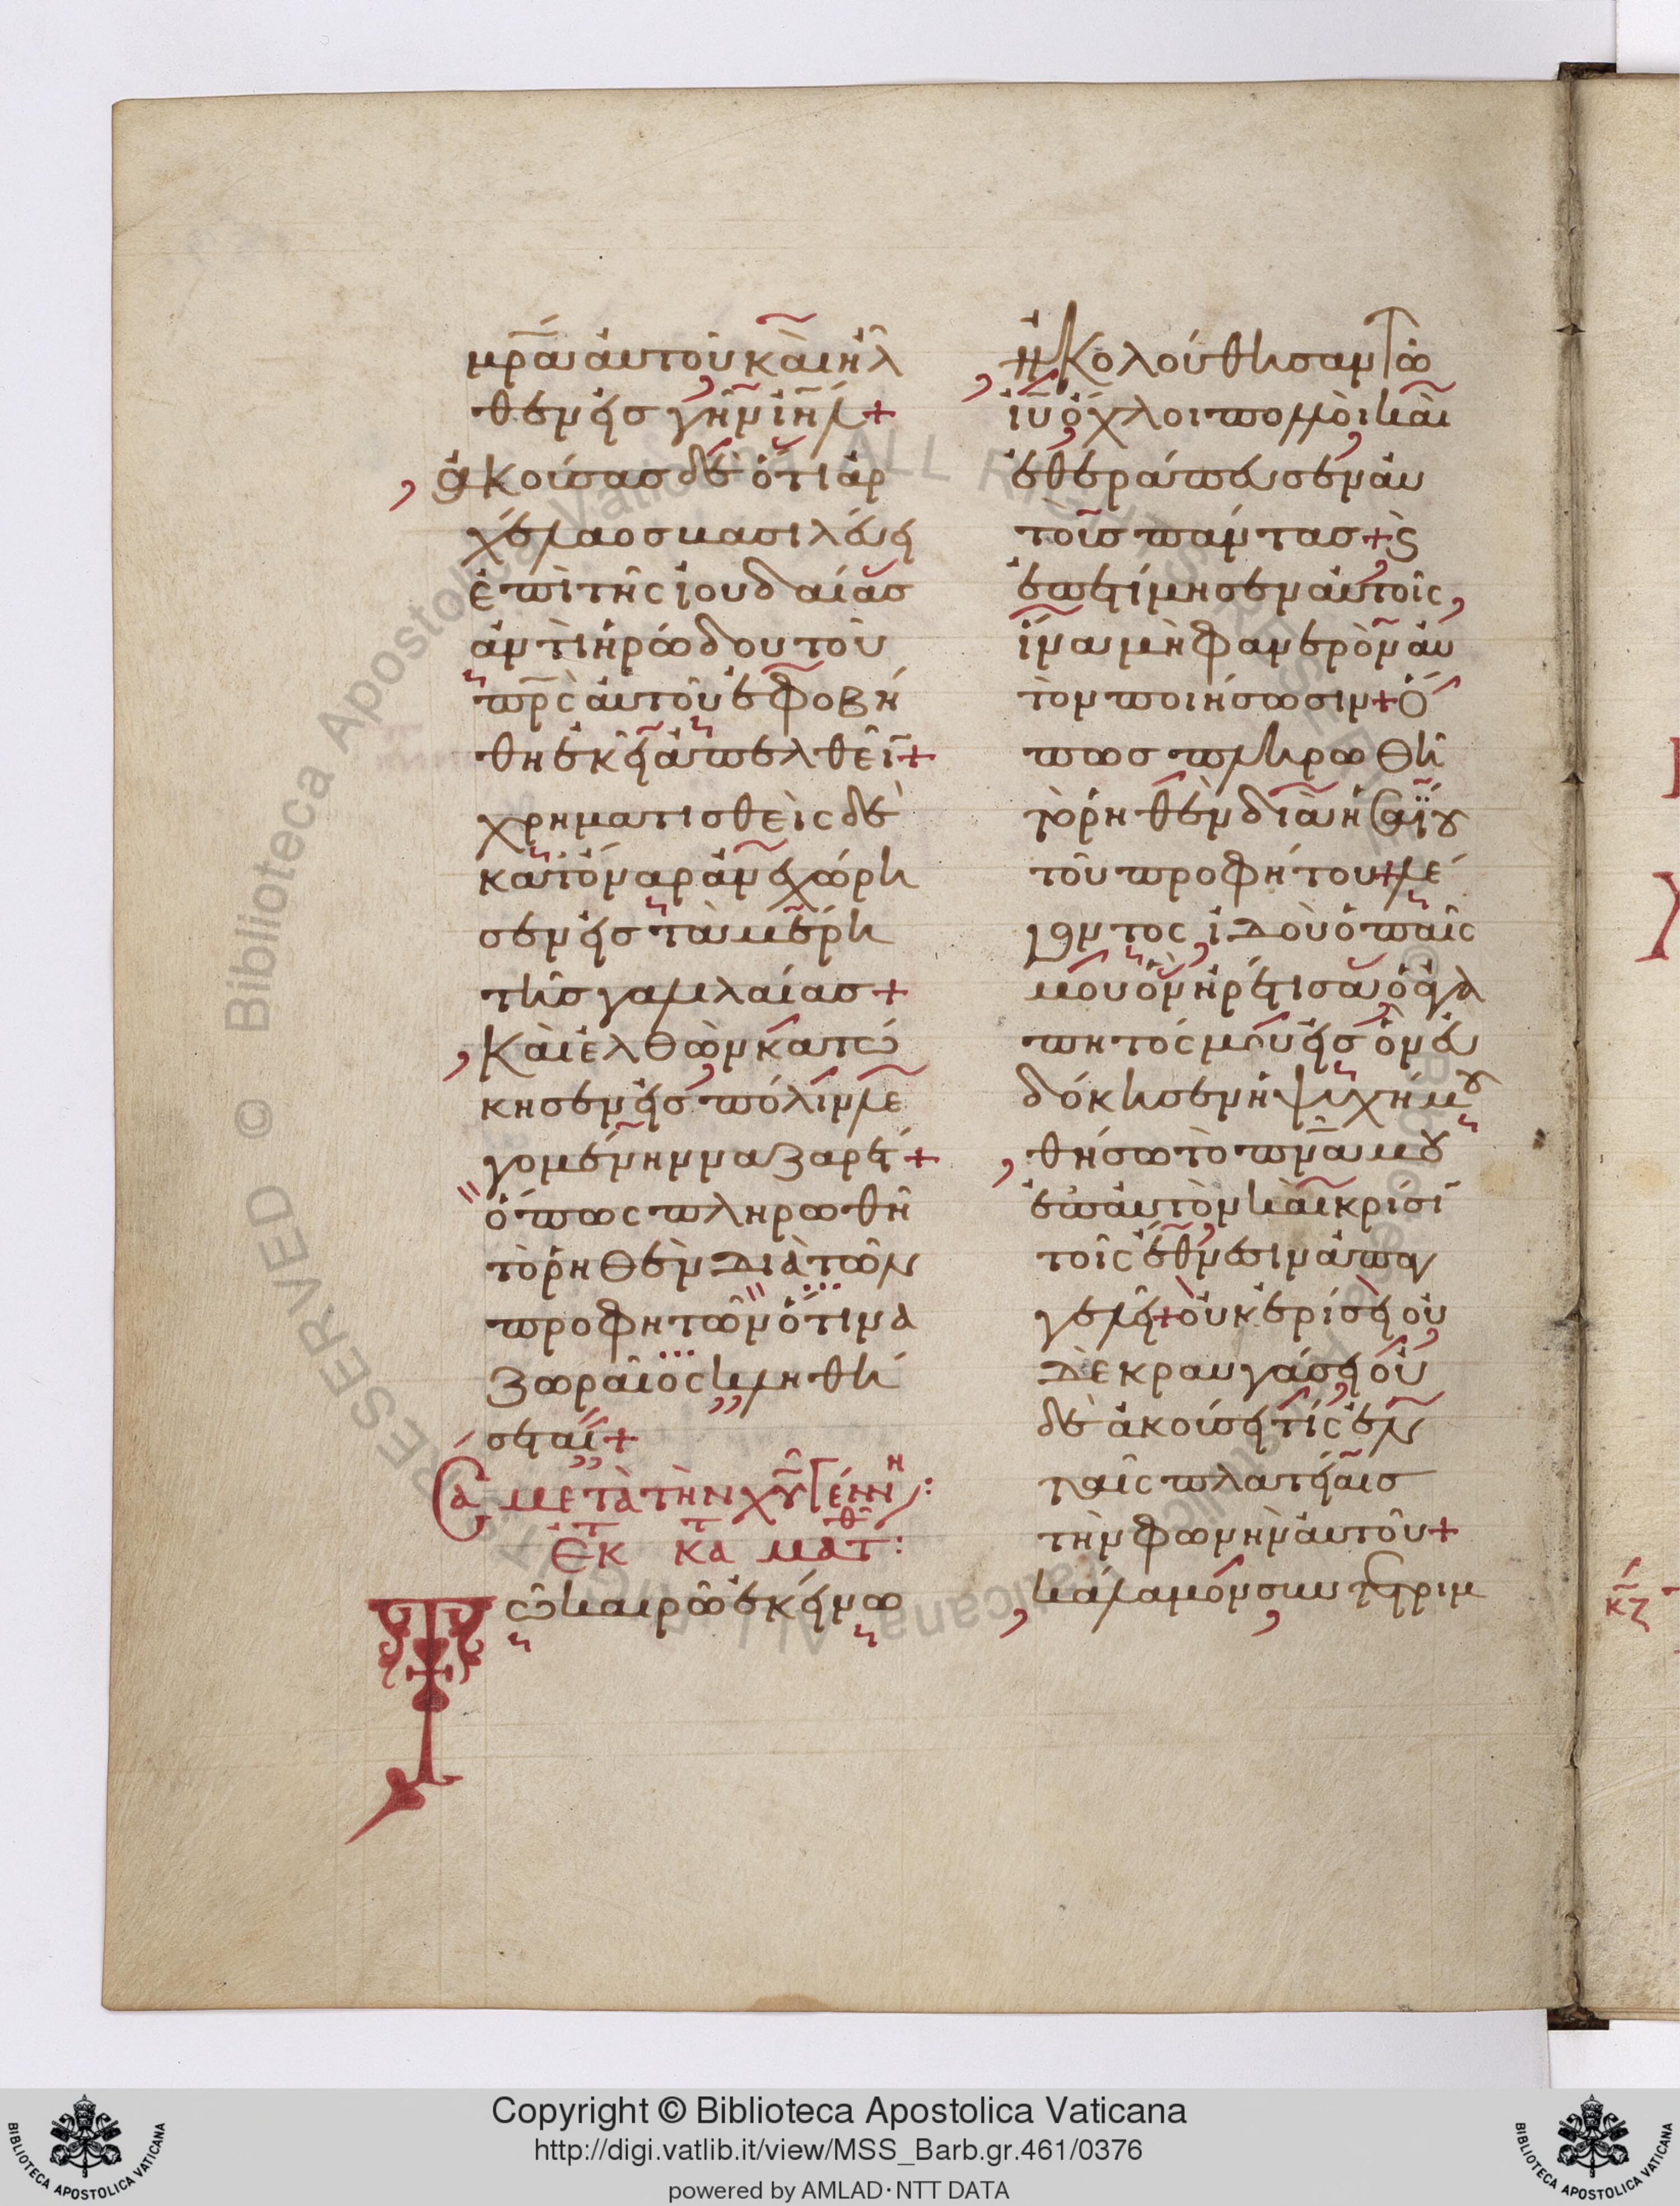 μρ̅α αὐτοῦ καὶ ἦλ
θεν εἰς γῆν ἰη̅λ +
ἀκούσας δὲ ὅτι ἀρ
χέλαος βασιλεύει
ἐπὶ τῆς ἰουδαίας
ἀντὶ ἡρώδου τοῦ
πρ̅ς αὐτοῦ ἐφοβή
θη ἐκεῖ ἀπελθεῖν +
χρηματισθεὶς δὲ
κατόναρ ἀνεχώρη
σεν εἰς τὰ μέρη
τῆς γαλιλαίας +
Καὶ ἐλθὼν κατώ
κησεν εἰς πόλιν λε
γομένην ναζαρέτ +
ὅπως πληρωθῆ
τὸ ῥηθὲν διὰ τῶν
προφητῶν ὅτι να
ζωραῖος κληθή
σεται +
Σα μετὰ τὴν χῦ γέννη:
Ἐκ τ κα τ ματθ:
Τῶ καιρῶ ἐκείνω
ἠκολούθησαν τῶ
ἰῦ ὄχλοι πολλοὶ καὶ
ἐθεράπευσεν αὐ
τοὺς πάντας + ϛ
ἐπετίμησεν αὐτοῖς,
ἵνα μὴ φανερὸν αὐ
τὸν ποιήσωσιν + ὅ
πως πληρωθῆ
τὸ ῥηθὲν διὰ ἡσαΐου
τοῦ προφήτου + λέ
γοντος ἰδοὺ ὁ παῖς
μου ὃν ἠρέτισα ὁ ἀγα
πητός μου εἰς ὃν εὐ
δόκησεν ἡ ψυχή μου
θήσω τὸ πν̅α μου
ἐπ' αὐτὸν καὶ κρίσιν
τοῖς ἔθνεσιν ἀπαγ
γελεῖ + οὐκ ἐρίσει οὐ
δὲ κραυγάσει οὐ
δὲ ἀκούσει τίς ἐν
ταῖς πλατείαις
τὴν φωνὴν αὐτοῦ +
κάλαμον συντετριμ
Copyright © Biblioteca Apostolica Vaticana
http://digi.vatlib.it/view/MSS_Barb.gr.461/0376
powered by AMLAD·NTT DATA